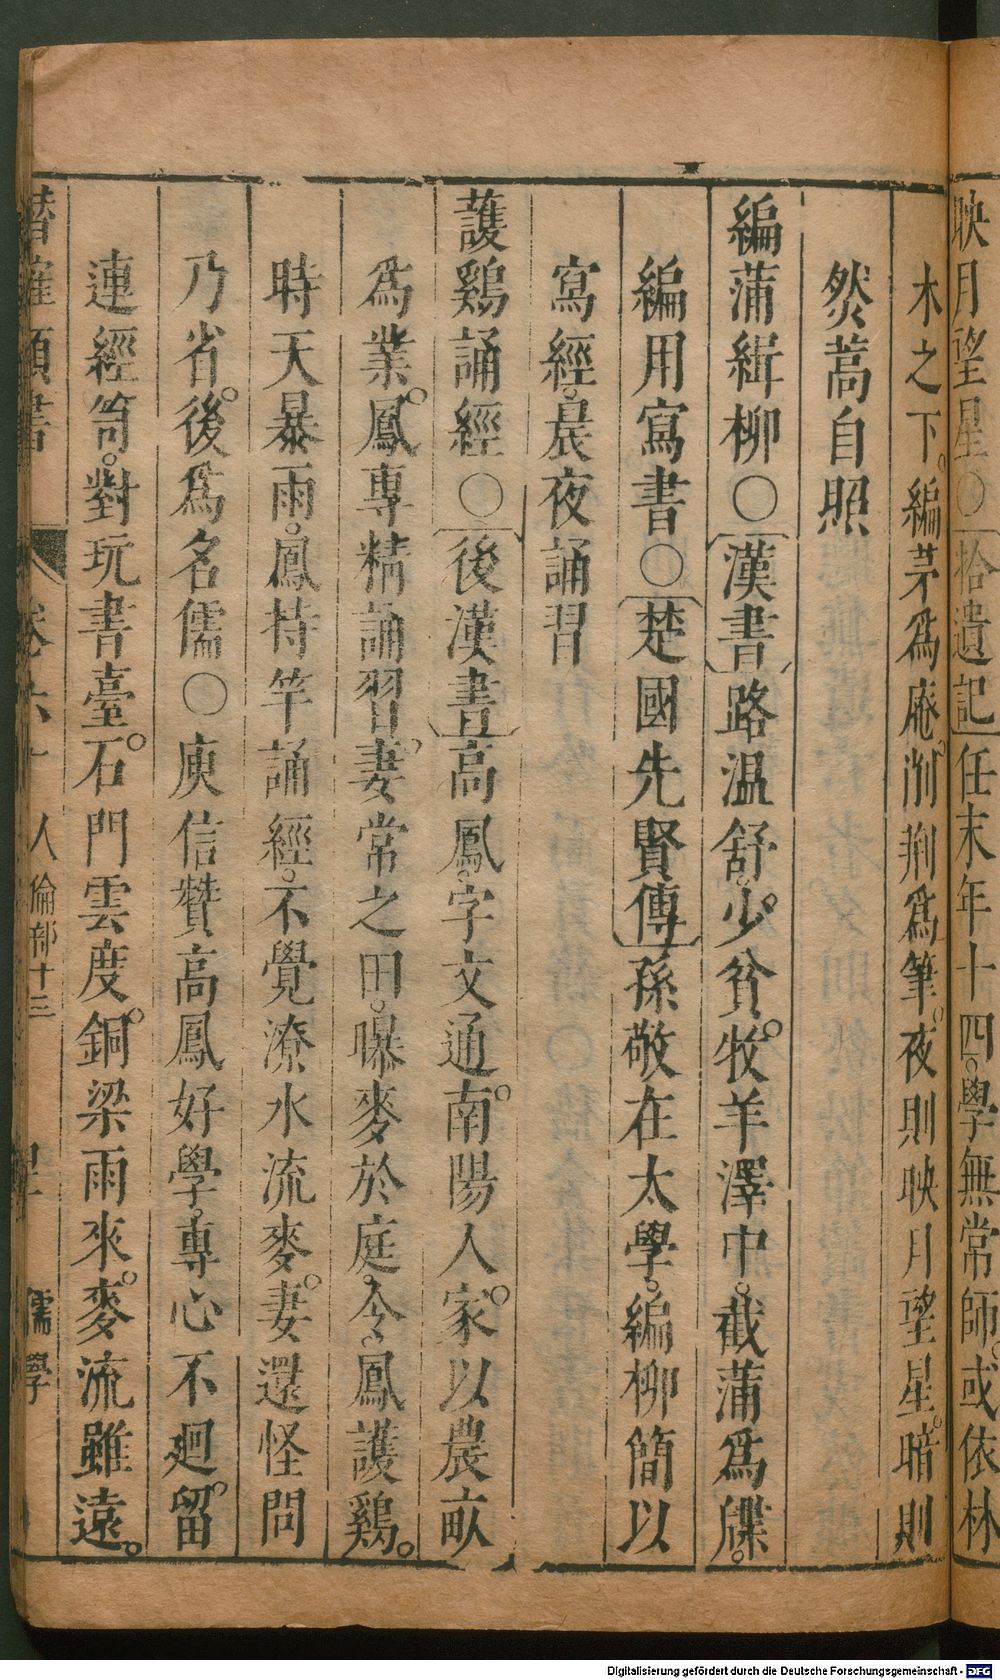 映月望星○拾遺記任末年十四。學無常師。或依林
木之下。編茅爲庵。削荆爲筆。夜則映月望星。暗則
然蒿自照
編蒲緝柳○漢書路温舒。少貧。牧羊澤中。截蒲爲牒。
編用寫書○楚國先賢傳孫敬在太學。編柳簡以
寫經。晨夜誦習
護鷄誦經○後漢書高鳳。字文通。南陽人。家以農畝
爲業。鳳專精誦習。妻常之田。曝麥於庭。令鳳護鷄。
時天暴雨。鳳持竿誦經。不覺潦水流麥。妻還怪問
乃省。後爲名儒○庾信贊高鳳好學。專心不廻。留
連經笥。對玩書臺。石門雲度。銅梁雨來。麥流雖遠。
潛確類書 卷六十 人倫部十三 儒學
Digitalisierung gefördert durch die Deutsche Forschungsgemeinschaft - DFG